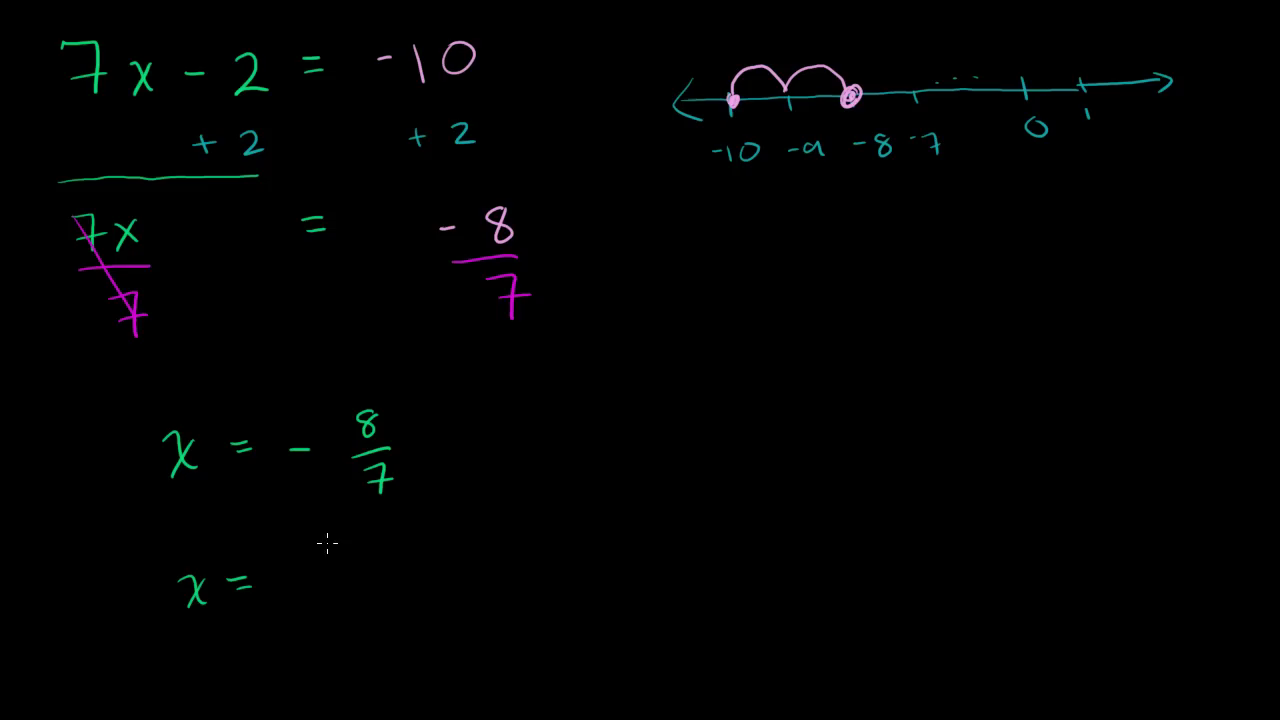 7x - 2 = -10
+ 2 + 2
7x = -8
7 7
x = - 8/7
x =
-10 -9 -8 -7 ... 0 1